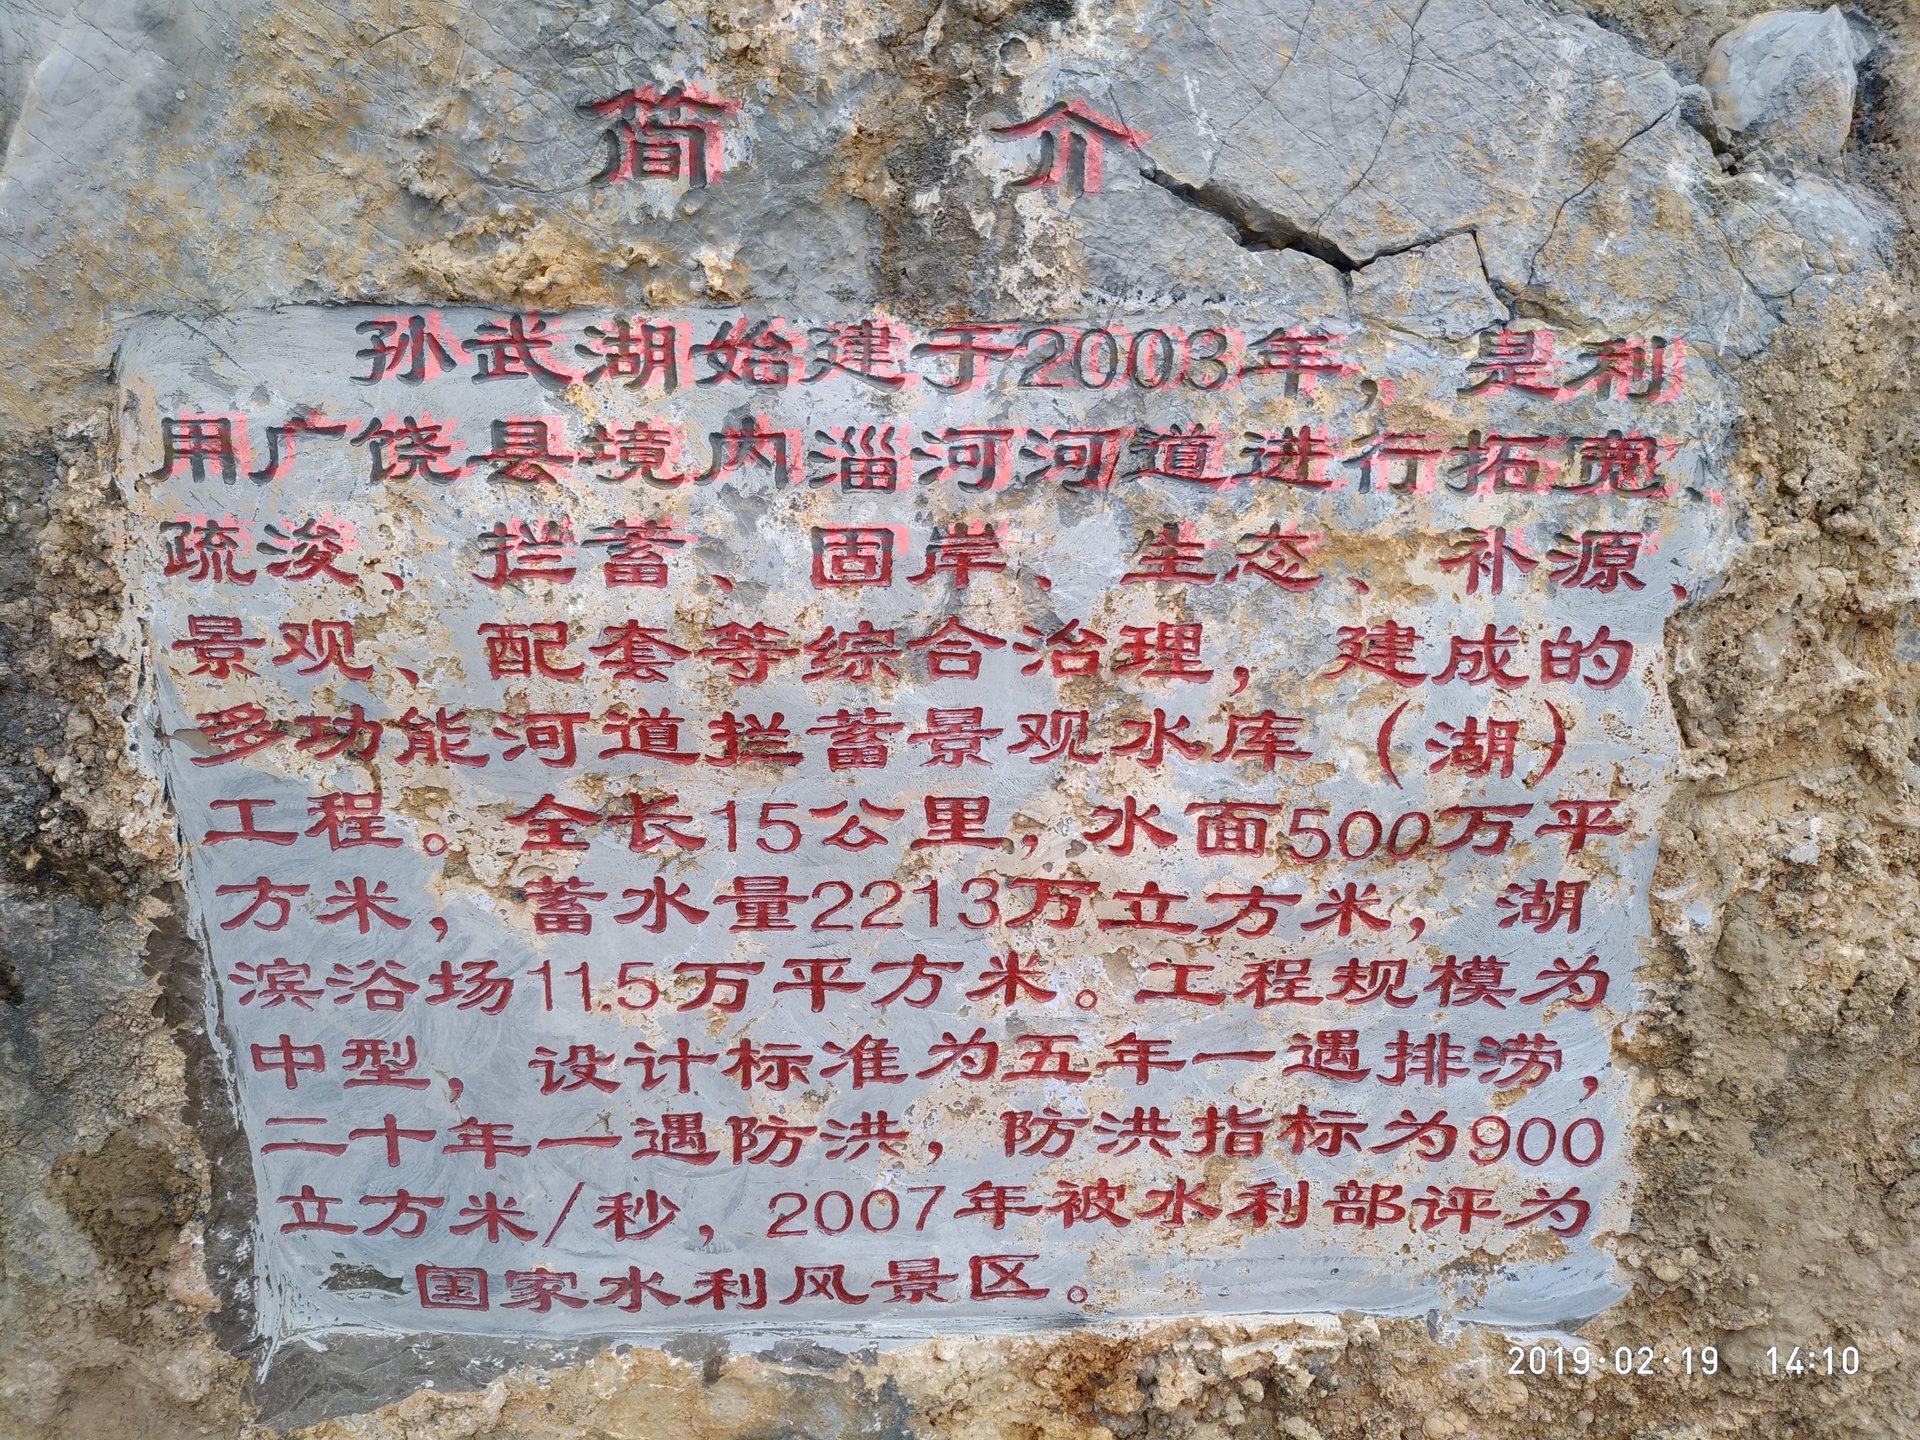 简 介
孙武湖始建于2003年，是利
用广饶县境内淄河河道进行拓宽、
疏浚、拦蓄、固岸、生态、补源、
景观、配套等综合治理，建成的
多功能河道拦蓄景观水库（湖）
工程。全长15公里，水面500万平
方米，蓄水量2213万立方米，湖
滨浴场11.5万平方米。工程规模为
中型，设计标准为五年一遇排涝，
二十年一遇防洪，防洪指标为900
立方米/秒，2007年被水利部评为
国家水利风景区。
2019·02·19 14:10